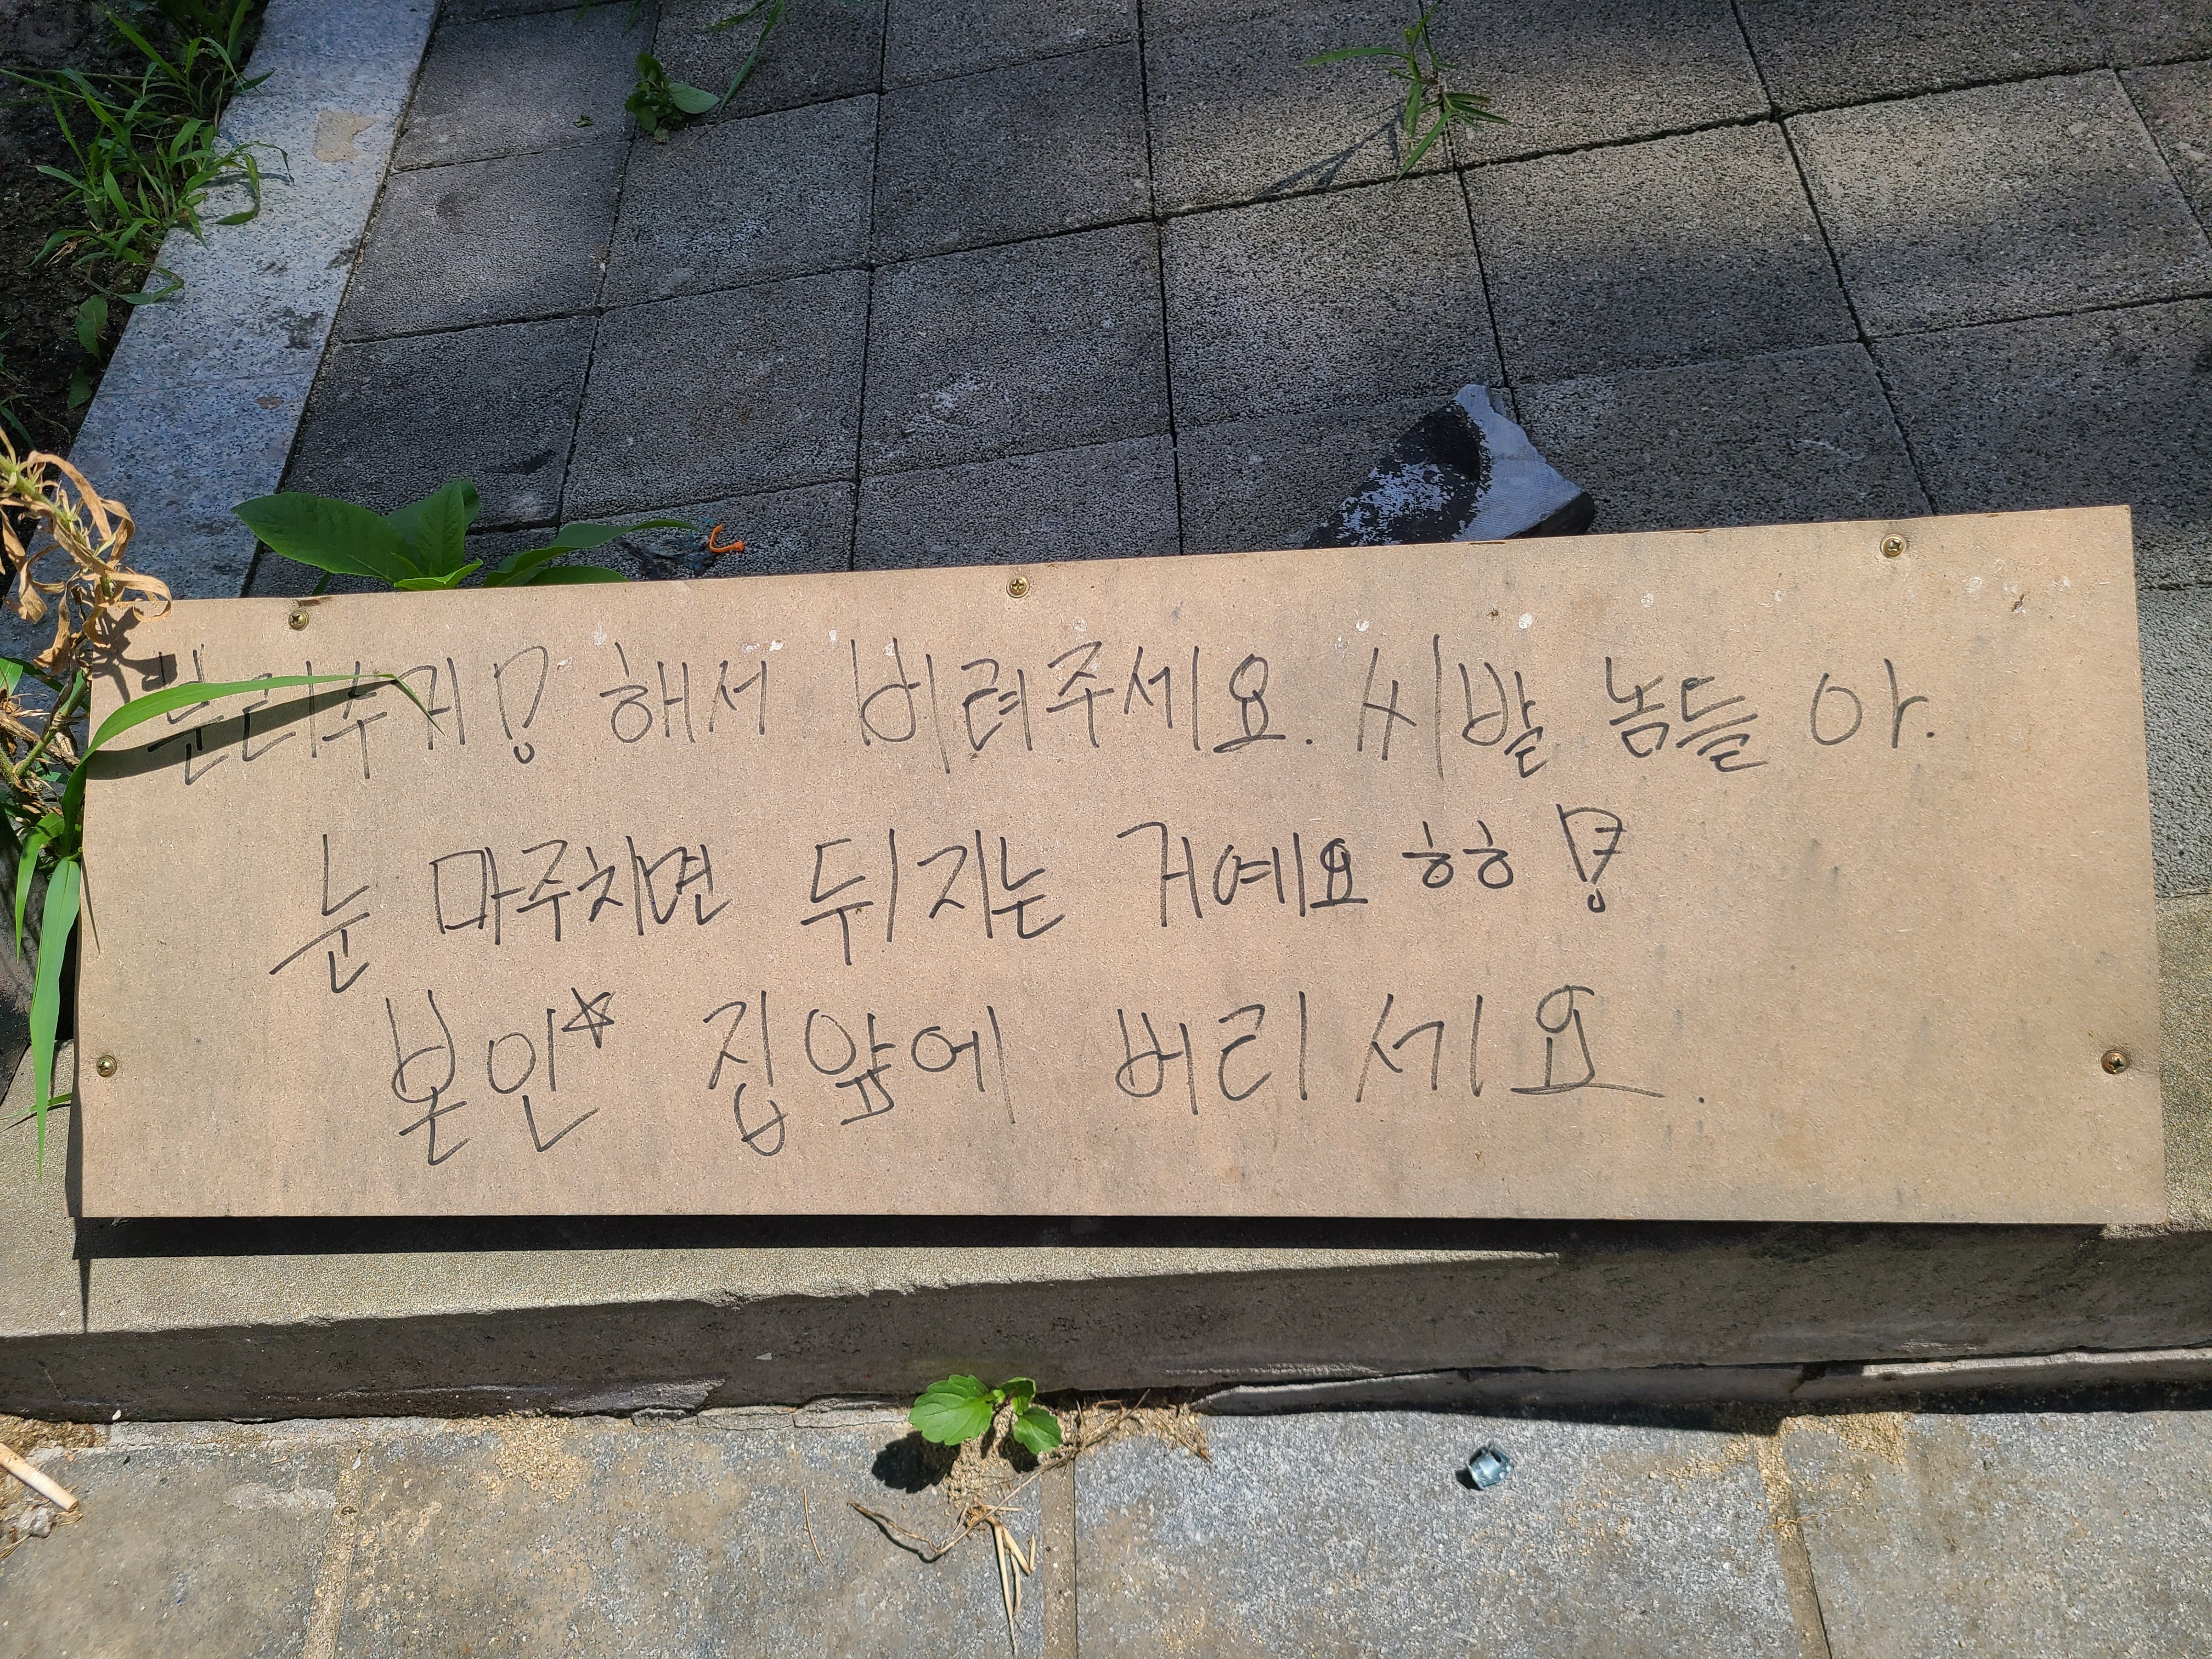 분리수거! 해서 버려주세요. 씨발 놈들 아.
눈 마주치면 뒤지는 거예요 ㅎㅎ !
본인☆ 집앞에 버리세요.